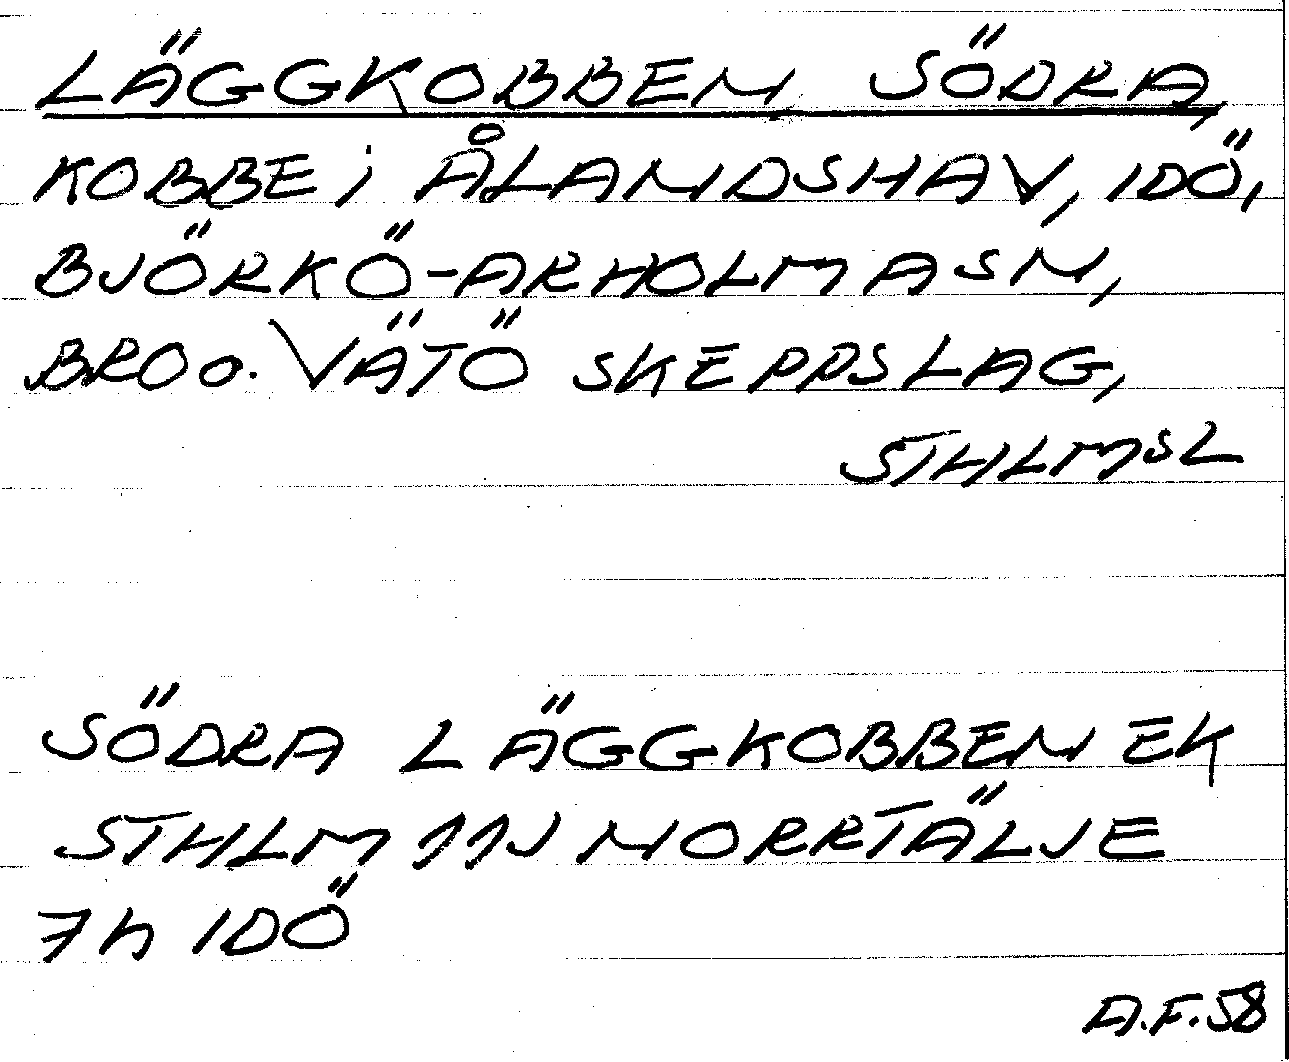 LÄGGKOBBEN, SÖDRA,
KOBBE i ÅLANDSHAV, IDÖ,
BJÖRKÖ-ARHOLMA SN,
BRO o. VÄTÖ SKEPPSLAG,
STHLMSL
SÖDRA LÄGGKOBBEN EK
STHLM 11J NORRTÄLJE
7h IDÖ
A.F.58